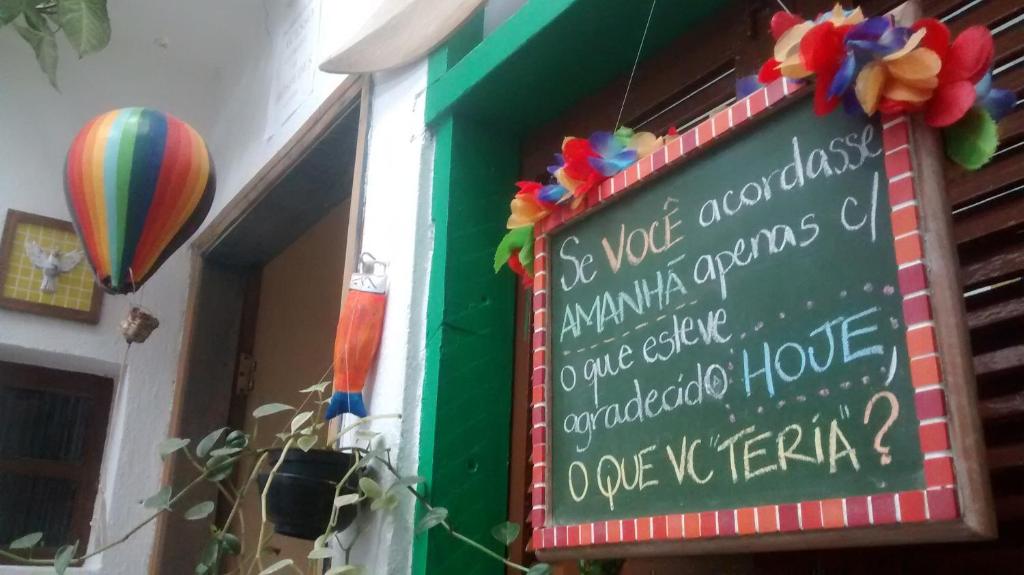 Se VOCÊ acordasse
AMANHÃ apenas c/
o que esteve
agradecido HOJE,
O QUE VC "TERIA"?